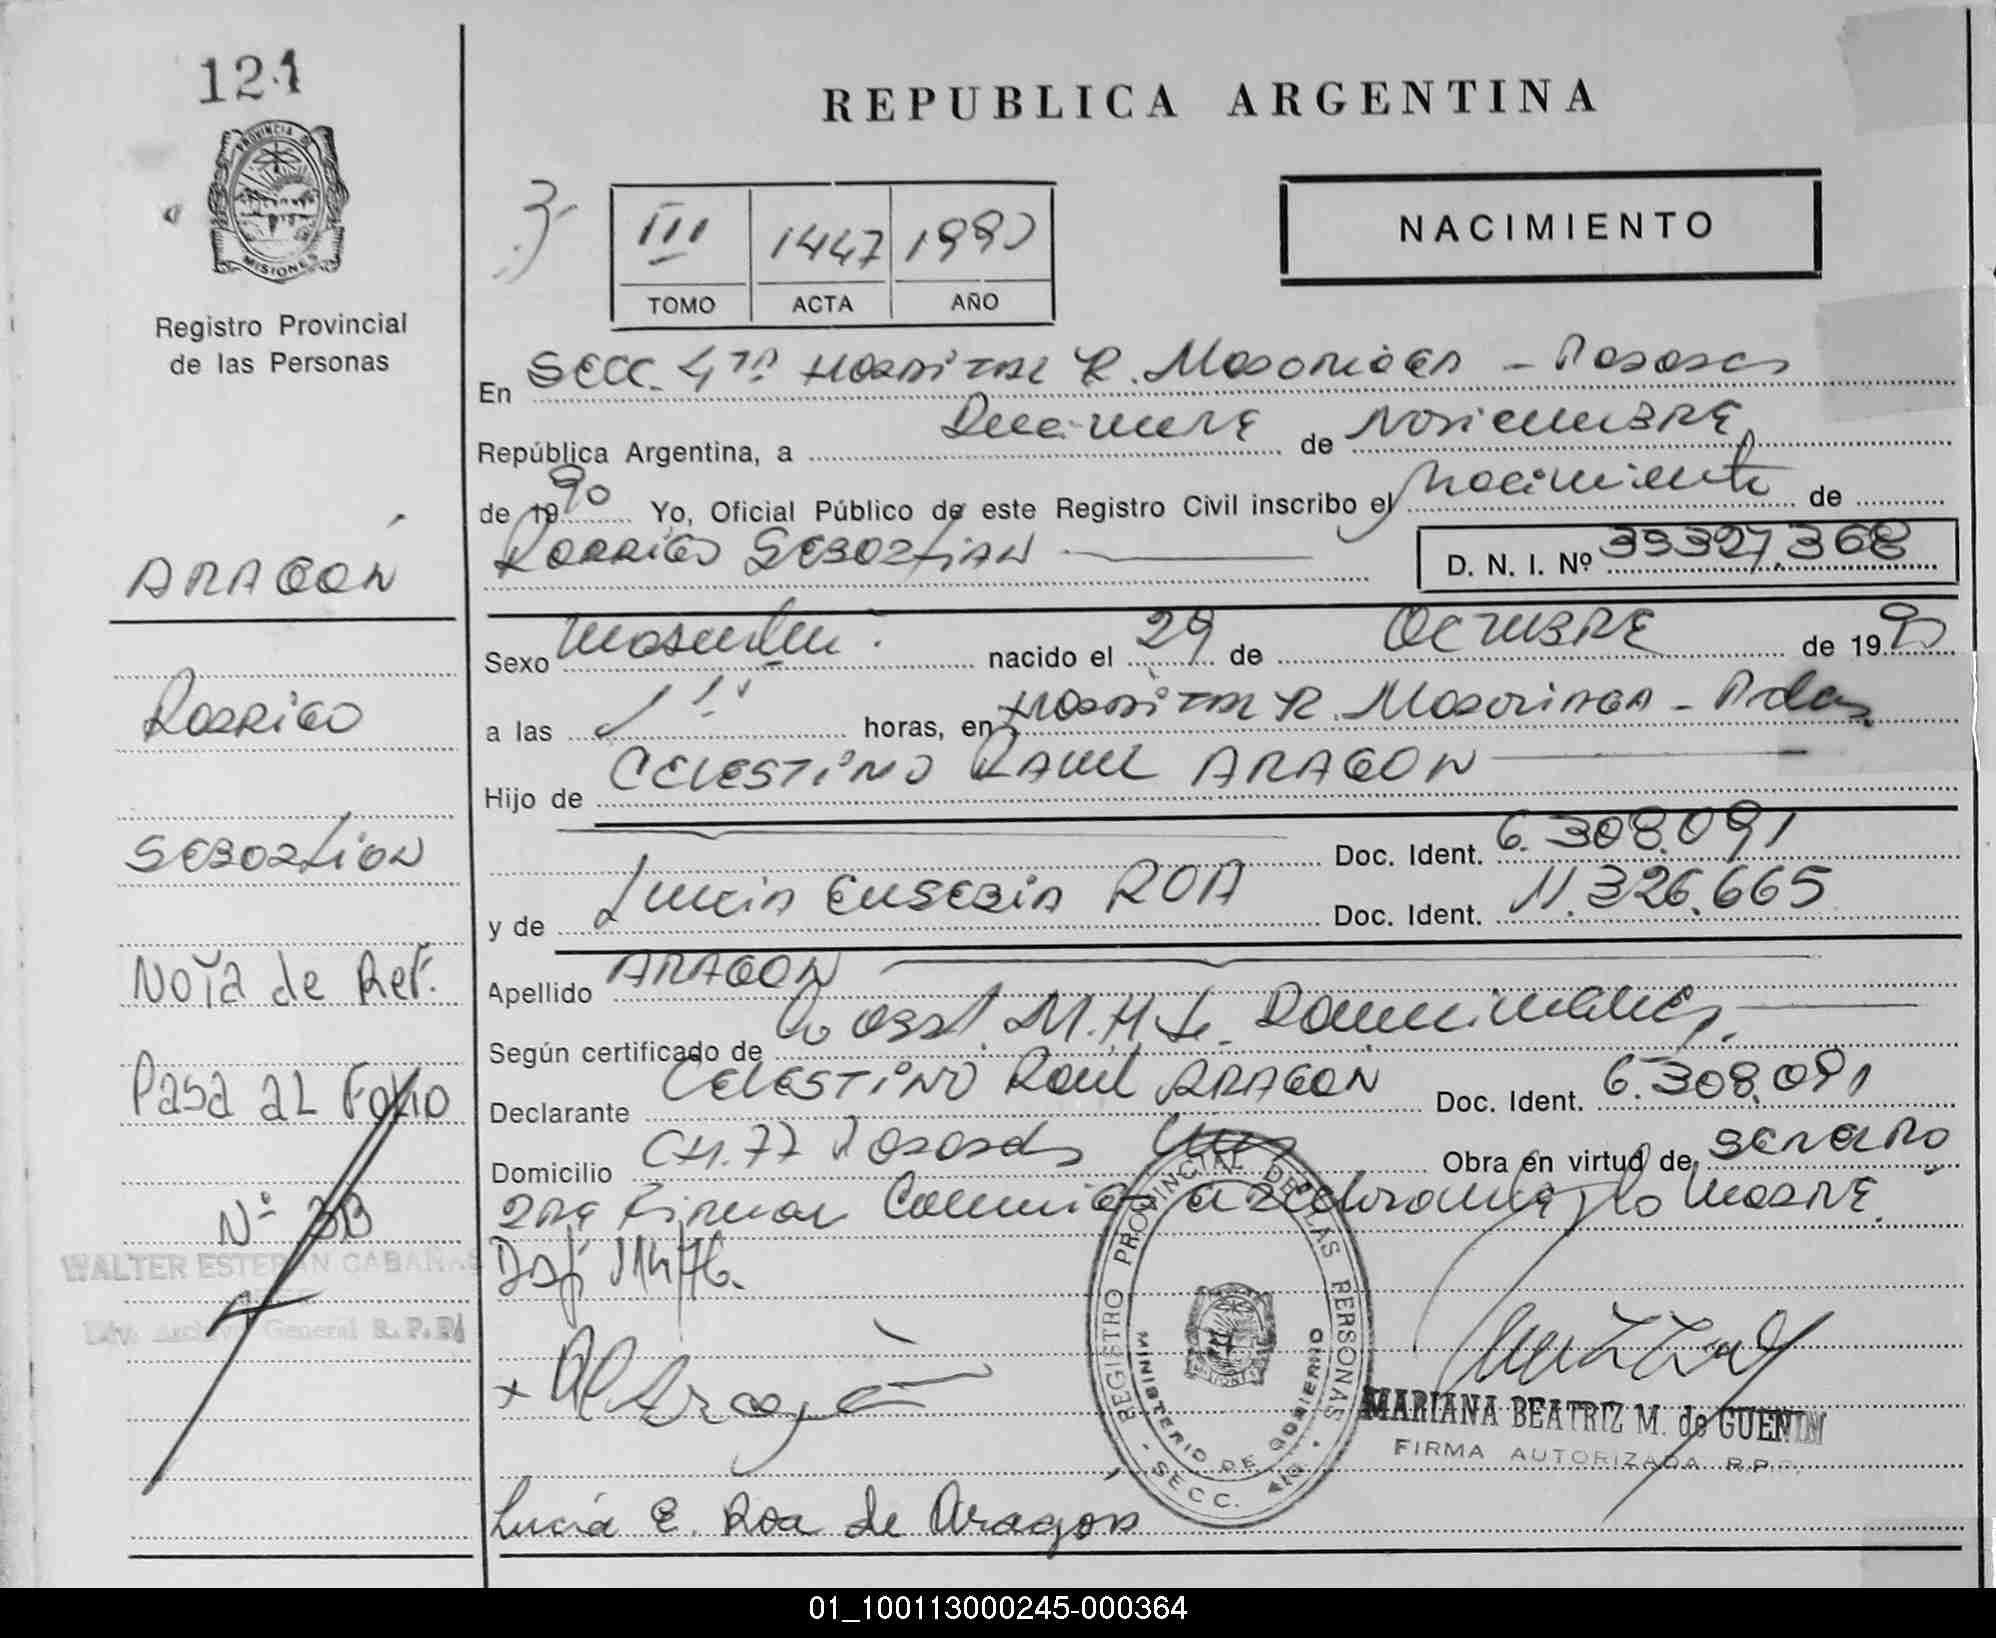 121
PROVINCIA DE
MISIONES
Registro Provincial
de las Personas
REPUBLICA ARGENTINA
NACIMIENTO
III 1447 1990
TOMO ACTA AÑO
En SECC. 4ta HOSPITAL R. Madariaga - Posadas
República Argentina, a Diecinueve de Noviembre
de 1990 Yo, Oficial Público de este Registro Civil inscribo el Nacimiento de
RODRIGO SEBASTIAN
D. N. I. Nº 35327.368
ARAGÓN
Rodrigo
SEBASTIAN
Nota de Ref.
Pasa al Folio
Nº 33
WALTER ESTEBAN CABAÑAS
Div. Archivo General R.P.P.
Sexo Masculino nacido el 29 de OCTUBRE de 1990
a las horas, en HOSPITAL R. Madariaga - Pdas
Hijo de CELESTINO RAUL ARAGON
Doc. Ident. 6.308.091
y de Lucia EUSEBIA ROA Doc. Ident. 11.326.665
Apellido ARAGON
Según certificado de
Declarante CELESTINO Raul ARAGON Doc. Ident. 6.308.091
Domicilio CH.77 Posadas Mnes Obra en virtud de
firmar la Madre.
REGISTRO PROVINCIAL DE LAS PERSONAS
MINISTERIO DE GOBIERNO
SECC. 4ta.
MARIANA BEATRIZ M. de GUENIN
FIRMA AUTORIZADA R.P.P.
Lucía E. Roa de Aragón
01_100113000245-000364